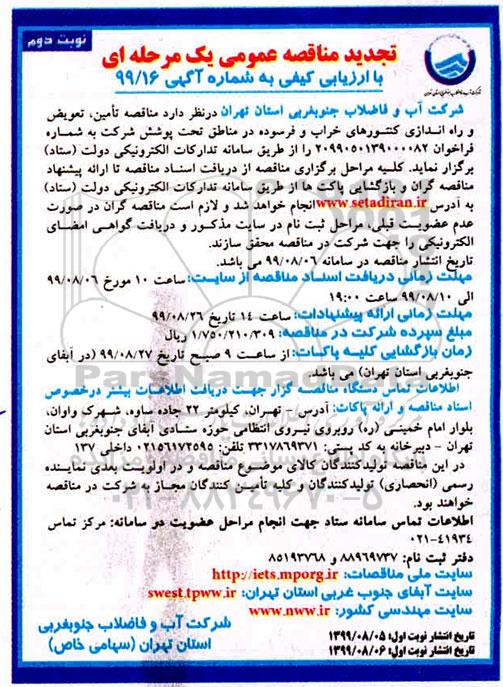 نوبت دوم
تجدید مناقصه عمومی یک مرحله ای
با ارزیابی کیفی به شماره آگهی ۹۹/۱۶
شرکت آب و فاضلاب جنوبغربی استان تهران درنظر دارد مناقصه تأمین، تعویض
و راه اندازی کنتورهای خراب و فرسوده در مناطق تحت پوشش شرکت به شماره
فراخوان ۲۰۹۹۰۵۰۱۳۹۰۰۰۰۸۲ را از طریق سامانه تدارکات الکترونیکی دولت (ستاد)
برگزار نماید. کلیه مراحل برگزاری مناقصه از دریافت اسناد مناقصه تا ارائه پیشنهاد
مناقصه گران و بازگشایی پاکت ها از طریق سامانه تدارکات الکترونیکی دولت (ستاد)
به آدرس www.setadiran.ir انجام خواهد شد و لازم است مناقصه گران در صورت
عدم عضویت قبلی، مراحل ثبت نام در سایت مذکور و دریافت گواهی امضای
الکترونیکی را جهت شرکت در مناقصه محقق سازند.
تاریخ انتشار مناقصه در سامانه ۹۹/۰۸/۰۶ می باشد.
مهلت زمانی دریافت اسناد مناقصه از سایت: ساعت ۱۰ مورخ ۹۹/۰۸/۰۶
الی ۹۹/۰۸/۱۰ ساعت ۱۹:۰۰
مهلت زمانی ارائه پیشنهادات: ساعت ۱۴ تاریخ ۹۹/۰۸/۲۶
مبلغ سپرده شرکت در مناقصه: ۱/۷۵۰/۲۱۰/۳۰۹ ریال
زمان بازگشایی کلیه پاکات: از ساعت ۹ صبح تاریخ ۹۹/۰۸/۲۷ (در آبفای
جنوبغربی استان تهران) می باشد.
اطلاعات تماس دستگاه مناقصه گزار جهت دریافت اطلاعات بیشتر درخصوص
اسناد مناقصه و ارائه پاکات: آدرس - تهران، کیلومتر ۲۲ جاده ساوه، شهرک واوان،
بلوار امام خمینی (ره) روبروی نیروی انتظامی حوزه ستادی آبفای جنوبغربی استان
تهران - دبیرخانه به کد پستی: ۳۳۱۷۸۶۹۳۷۱ تلفن: ۰۲۱۵۶۱۷۲۵۹۵ داخلی ۱۳۷
در این مناقصه تولیدکنندگان کالای موضوع مناقصه و در اولویت بعدی نماینده
رسمی (انحصاری) تولیدکنندگان و کلیه تأمین کنندگان مجاز به شرکت در مناقصه
خواهند بود.
اطلاعات تماس سامانه ستاد جهت انجام مراحل عضویت در سامانه: مرکز تماس
۰۲۱-۴۱۹۳۴
دفتر ثبت نام: ۸۸۹۶۹۷۳۷ و ۸۵۱۹۳۷۶۸
سایت ملی مناقصات: http://iets.mporg.ir
سایت آبفای جنوب غربی استان تهران: swest.tpww.ir
سایت مهندسی کشور: www.nww.ir
شرکت آب و فاضلاب جنوبغربی
استان تهران (سهامی خاص)
تاریخ انتشار نوبت اول: ۱۳۹۹/۰۸/۰۵
تاریخ انتشار نوبت اول: ۱۳۹۹/۰۸/۰۶
ParsNamadData
۰۲۱-۸۸۳۴۹۶۷۰-۵